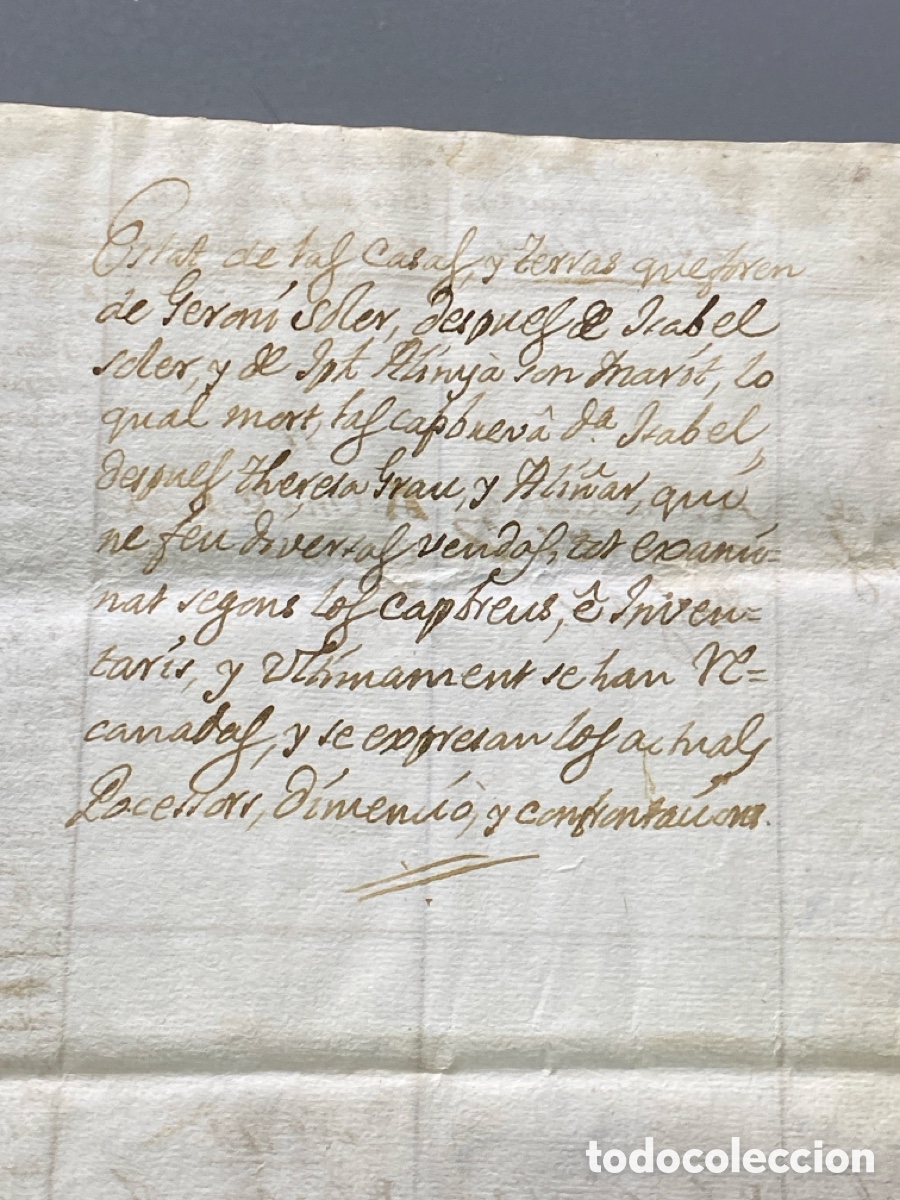 Estat de las casas, y terras que foren
de Geroni Soler, despues de Isabel
soler, y de Jph Alinyà son marit, lo
qual mort, las capbrevâ d.ª Isabel,
despues Theresa Grau, y Aliñar, qui
ne feu diversas vendas, tot exami-
nat segons los capbreus, ê Inven=
taris, y ultimament se han re=
canadas, y se expresan los actuals
Pocessors, dimenciò, y confrontacions.
todocoleccion